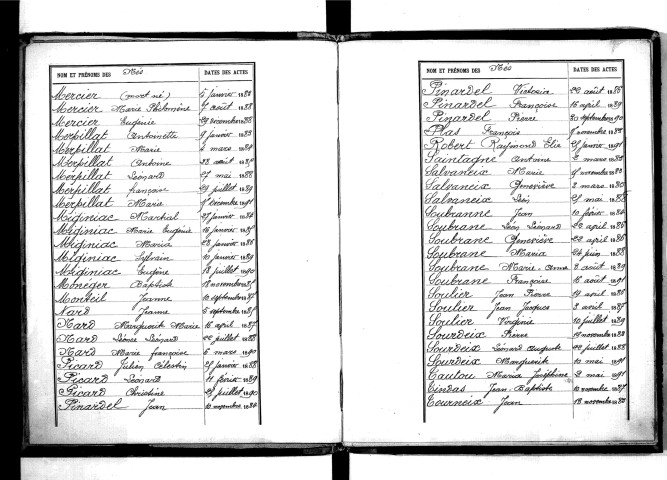 NOM ET PRÉNOMS DES Nés DATES DES ACTES
Mercier (mort né) 5 janvier 1888
Mercier Marie Philomène 7 août 1888
Mercier Eugénie 29 décembre 1888
Merpillat Antoinette 9 janvier 1883
Merpillat Marie 4 mars 1884
Merpillat Antoine 28 août
Merpillat Léonard 27 mai 1888
Merpillat françoise 29 juillet 1889
Merpillat Marie décembre 1891
Miginiac Martial 27 janvier 1884
Miginiac Marie Eugénie 16 janvier
Miginiac Maria 28 janvier 1886
Miginiac Sylvain 10 janvier 1889
Miginiac Eugène 18 juillet 1890
Moneger Baptiste 18 novembre
Monteil Jeanne 10 septembre 1887
Nard Jeanne 5 septembre
Nard Marguerit Marie 16 avril 1887
Nard Léonce Léonard 22 juillet 1888
Nard Marie françoise 6 mars 1890
Picard Julien Célestin 25 janvier 1888
Picard Léonard 11 février 1889
Picard Christine 25 juillet 1890
Pinardel Jean 10 novembre 1884
NOM ET PRÉNOMS DES Nés DATES DES ACTES
Pinardel Victoria 22 août 1886
Pinardel Françoise 16 avril 1889
Pinardel Pierre 30 septembre 1890
Plas François novembre 1885
Robert Raymond Elie 25 janvier 1891
Saintagne Antoine 2 mars 1885
Salvaneix Marie novembre
Salvaneix Geneviève 3 mars
Salvaneix Léon 25 mai 1885
Soubranne Jean 10 février 1884
Soubrane Léon Léonard 20 avril 1886
Soubrane Geneviève 22 avril 1886
Soubrane Maria 24 juin 1888
Soubrane Marie-Anna 3 août 1889
Soubrane Françoise 16 août 1891
Soulier Jean Pierre 14 avril 1885
Soulier Jean Jacques 3 avril 1887
Soulier Virginie 10 juillet 1889
Sourdeix Pierre 19 novembre
Sourdeix Léonard Auguste 22 juillet 1888
Sourdeix Marguerite 10 mai 1891
Tautou Maria Joséphine 2 mai 1891
Tindas Jean-Baptiste 10 novembre 1887
Tourneix Jean 18 novembre